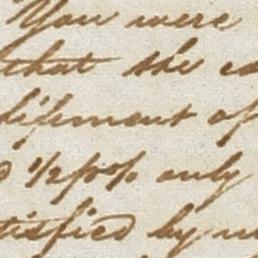 You were
that the co
lishment of
½ only
tisfied by